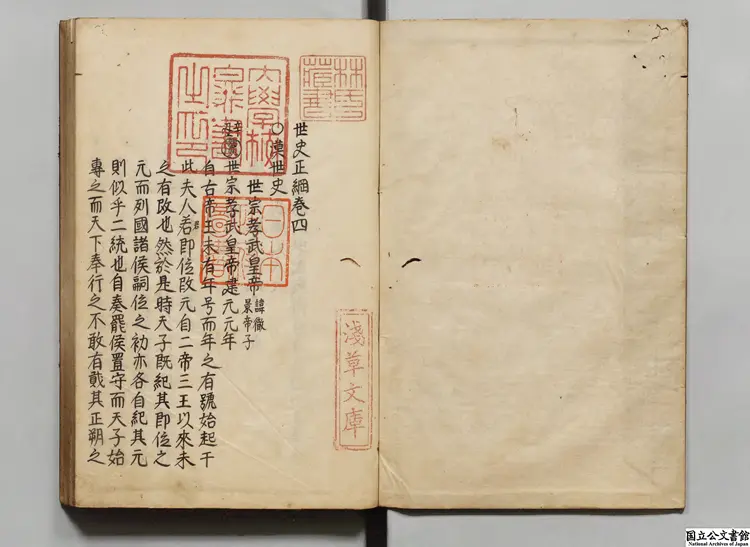 林氏藏書
世史正綱巻四
○漢世史
世宗孝武皇帝
諱徹
景帝子
世宗孝武皇帝建元元年
自古帝王未有年号而年之有號始起于
此夫人君即位改元自二帝三王以來未
之有改也然於是時天子既紀其即位之
元而列國諸侯嗣位之初亦各自紀其元
則似乎二統也自秦罷侯置守而天子始
專之而天下奉行之不敢有貳其正朔之
大學校圖書之印
日本政府圖書
淺草文庫
国立公文書館
National Archives of Japan